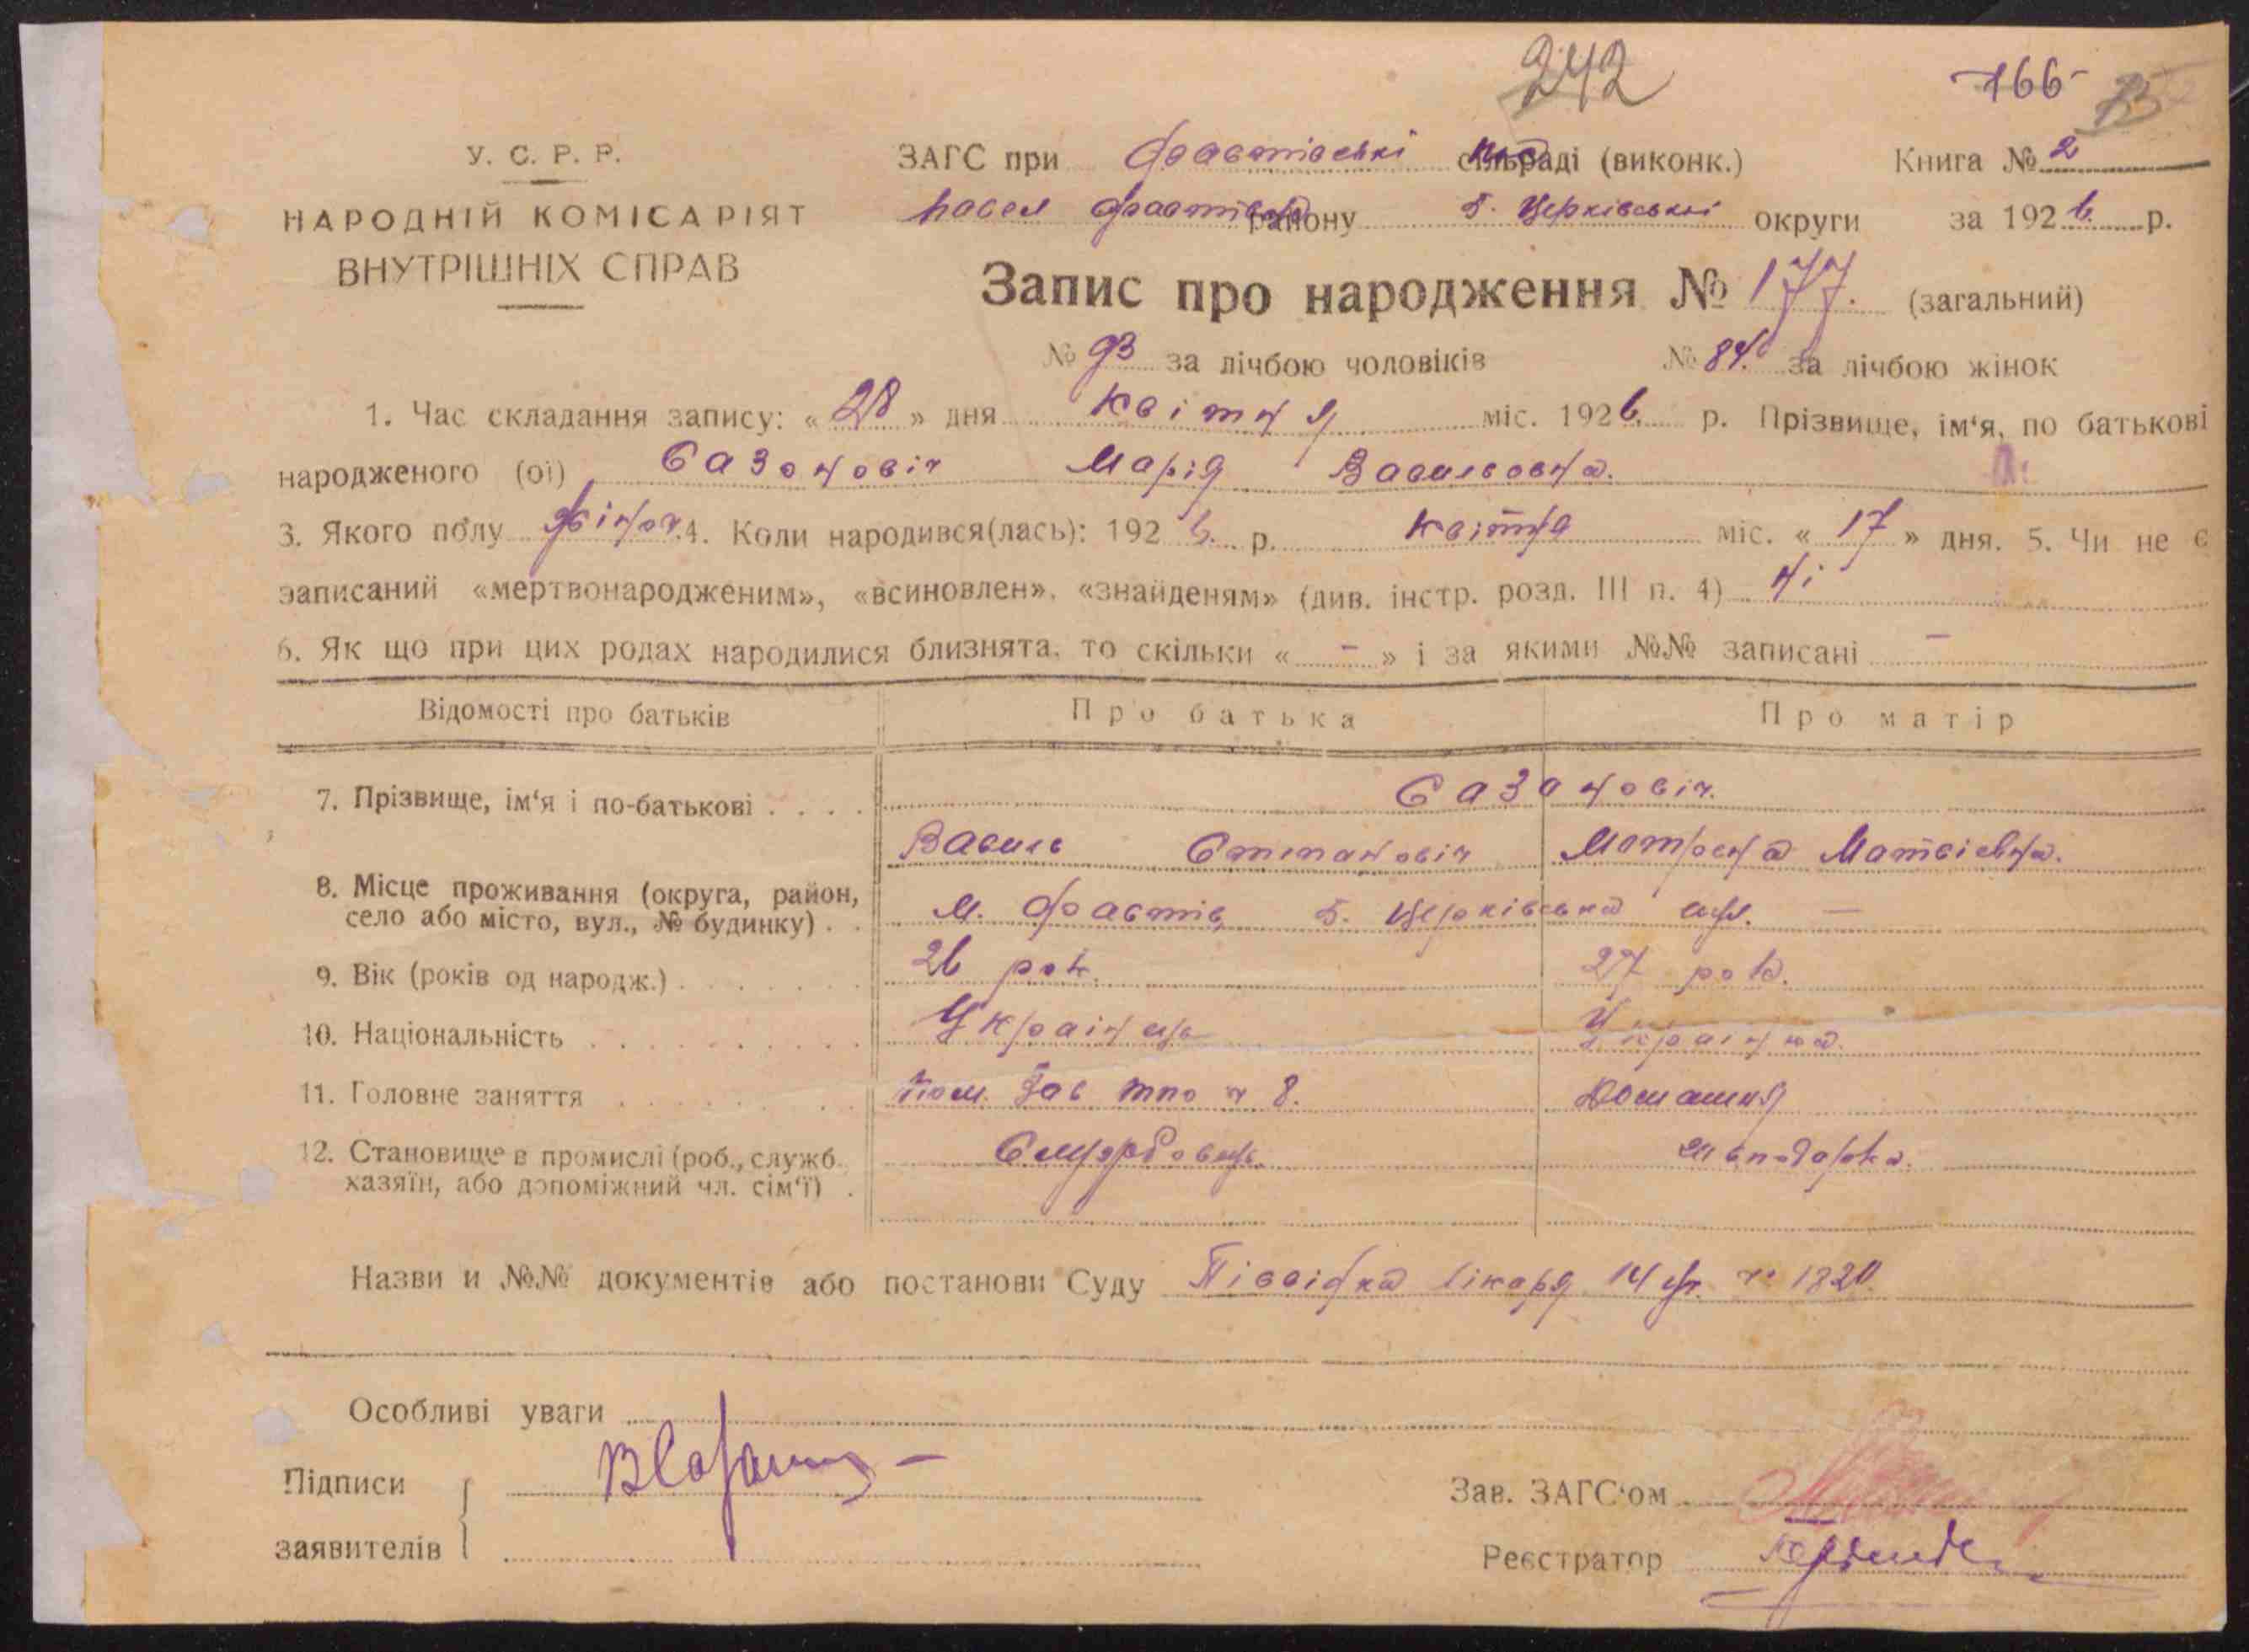 242
166
У. С. Р. Р.
НАРОДНІЙ КОМІСАРІЯТ
ВНУТРІШНІХ СПРАВ
ЗАГС при Фастівські сільраді (виконк.) Книга № 2
Фастів району Б. Церківської округи за 1926 р.
Запис про народження № 177. (загальний)
№ 93 за лічбою чоловіків № 84. За лічбою жінок
1. Час складання запису: « 28 » дня квітня міс. 1926 р. Прізвище, ім'я, по батькові
народженого (ої) Сазоновіч Марія Васильовна.
3. Якого полу жіноч. 4. Коли народився(лась): 1926 р. квітня міс. « 17 » дня. 5. Чи не є
записаний «мертвонародженим», «всиновлен», «знайденям» (див. інстр. розд. III п. 4) ні
6. Як що при цих родах народилися близнята, то скільки « – » і за якими №№ записані –
Відомості про батьків Про батька Про матір
7. Прізвище, ім'я і по-батькові . . . . Сазановіч.
Василь Степановіч Мотрена Матвієвна.
8. Місце проживання (округа, район,
село або місто, вул., № будинку) . . м. Фастів, Б. Церківська —
9. Вік (років од народж.) . . . . . . . 26 рок. 27 рок.
10. Національність . . . . . . . . . . Українець Українка.
11. Головне заняття . . . . . . . . . Пом. Зав 8. Домашня
12. Становище в промислі (роб., служб.
хазяїн, або допоміжний чл. сім'ї) . Службовець. Господарка.
Назви и №№ документів або постанови Суду лікаря 14 № 1820.
Особливі уваги
Підписи
заявителів
Зав. ЗАГС'ом
Реєстратор